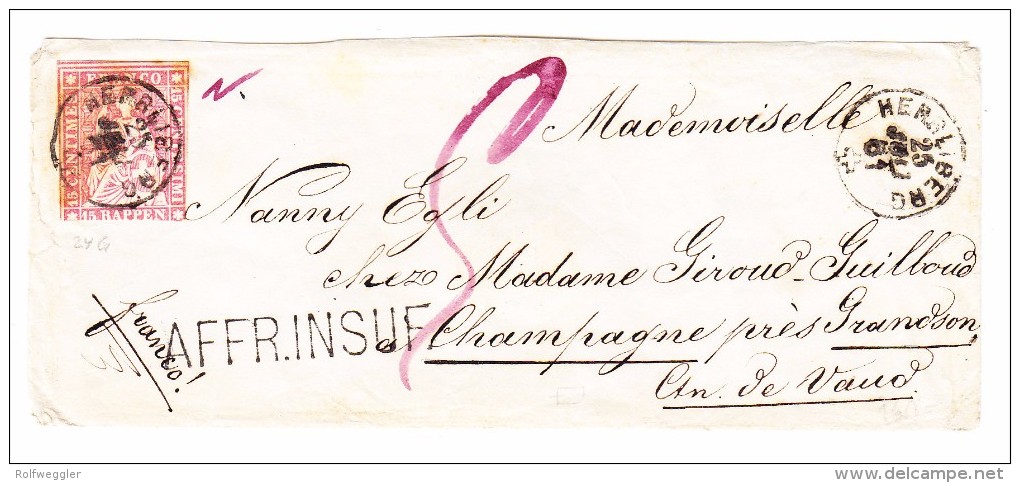 FRANCO
15 CENTIMES
15 CENTESIMI
15 RAPPEN
HERRLIBERG
25
HERRLIBERG
25
64
Mademoiselle
Nanny Egli
chez Madame Giroud-Guilloud
à Champagne près Grandson,
Ctn. de Vaud.
franco!
AFFR.INSUF
24G
Rolfweggler
www.delcampe.net